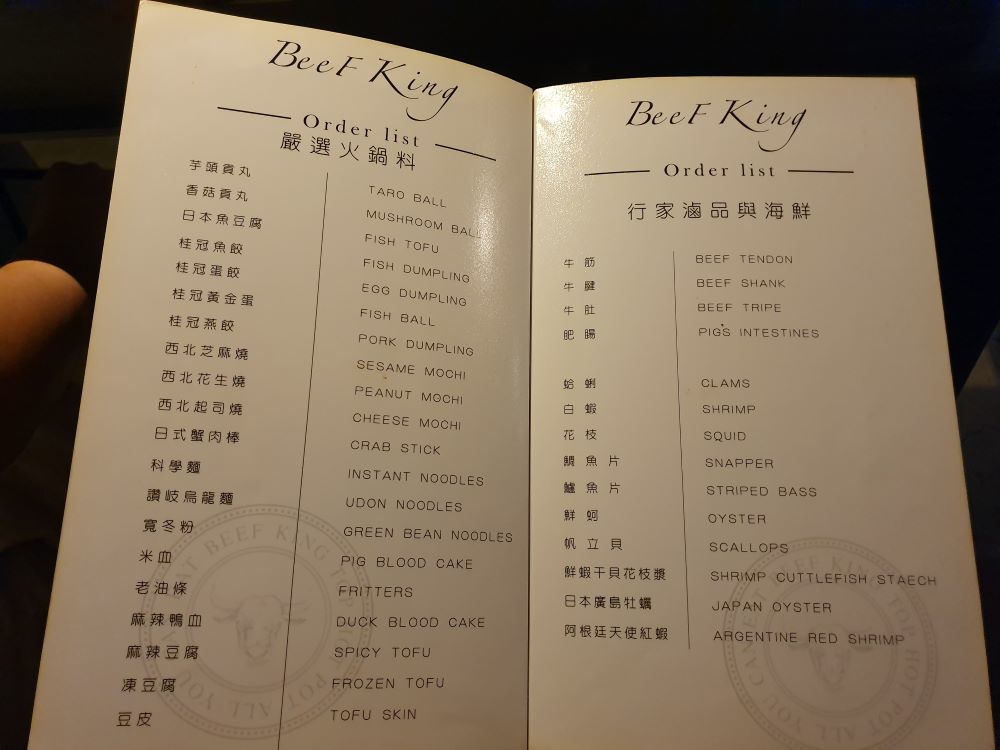 BeeF King
Order list
嚴選火鍋料
芋頭貢丸 TARO BALL
香菇貢丸 MUSHROOM BALL
日本魚豆腐 FISH TOFU
桂冠魚餃 FISH DUMPLING
桂冠蛋餃 EGG DUMPLING
桂冠黃金蛋 FISH BALL
桂冠燕餃 PORK DUMPLING
西北芝麻燒 SESAME MOCHI
西北花生燒 PEANUT MOCHI
西北起司燒 CHEESE MOCHI
日式蟹肉棒 CRAB STICK
科學麵 INSTANT NOODLES
讚岐烏龍麵 UDON NOODLES
寬冬粉 GREEN BEAN NOODLES
米血 PIG BLOOD CAKE
老油條 FRITTERS
麻辣鴨血 DUCK BLOOD CAKE
麻辣豆腐 SPICY TOFU
凍豆腐 FROZEN TOFU
豆皮 TOFU SKIN
BEEF KING TOP HOT POT ALL YOU CAN EAT
BeeF King
Order list
行家滷品與海鮮
牛筋 BEEF TENDON
牛腱 BEEF SHANK
牛肚 BEEF TRIPE
肥腸 PIG'S INTESTINES
蛤蜊 CLAMS
白蝦 SHRIMP
花枝 SQUID
鯛魚片 SNAPPER
鱸魚片 STRIPED BASS
鮮蚵 OYSTER
帆立貝 SCALLOPS
鮮蝦干貝花枝漿 SHRIMP CUTTLEFISH STAECH
日本廣島牡蠣 JAPAN OYSTER
阿根廷天使紅蝦 ARGENTINE RED SHRIMP
BEEF KING TOP HOT POT ALL YOU CAN EAT